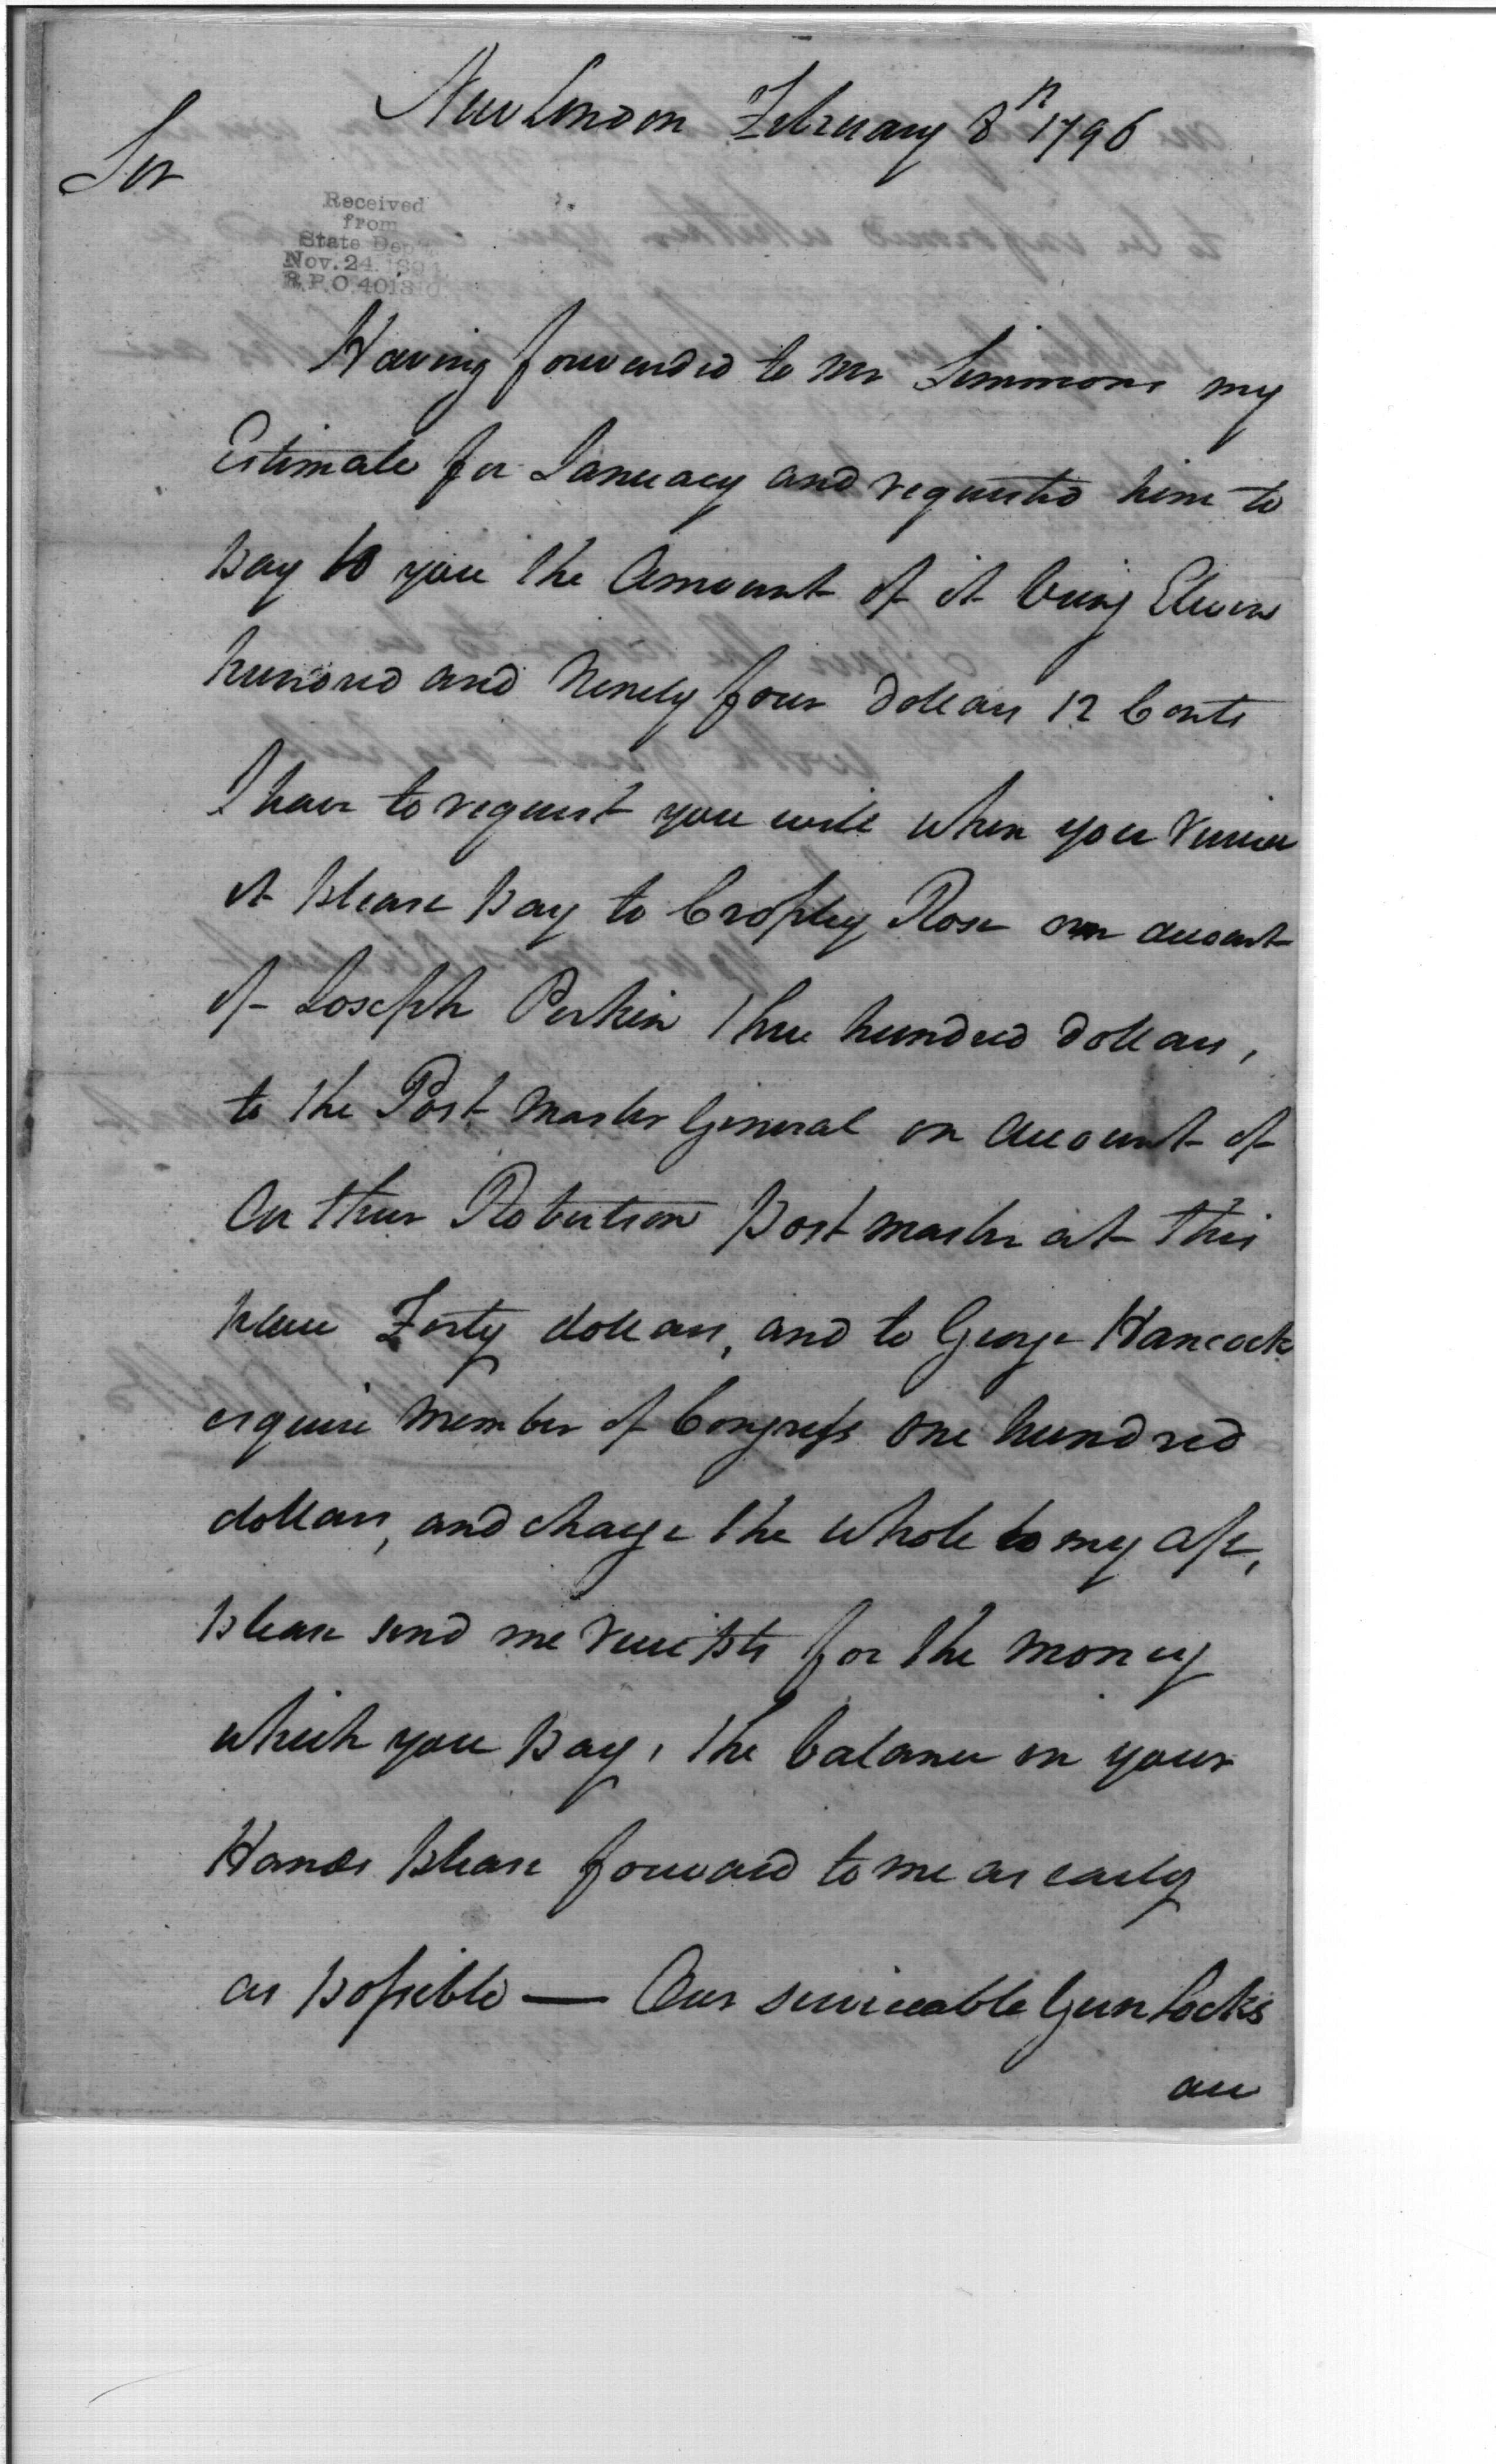 New London February 8th 1796
Sir
Received
from
State Dep't
Nov. 24. 1894.
R.P.O. 4013
Having forwarded to Mr Simmons my
Estimate for January and requested him to
pay to you the Amount of it being Eleven
hundred and Ninety four dollars 12 Cents
I have to request you will when you receive
it please pay to Cropley Rose on account
of Joseph Perkin Three hundred dollars,
to the Post Master General on account of
Arthur Robertson Post master at this
place Forty dollars, and to George Hancock
esquire Member of Congress one hundred
dollars, and charge the whole to my a/c,
please send me receipts for the money
which you pay, the balance in your
Hands please forward to me as early
as possible — Our serviceable Gun Locks
are